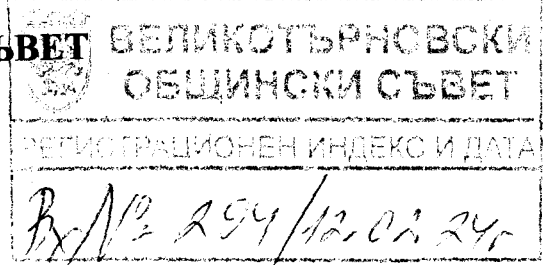 ЪВЕТ
ВЕЛИКОТЪРНОВСКИ
ОБЩИНСКИ СЪВЕТ
РЕГИСТРАЦИОНЕН ИНДЕКС И ДАТА
Вх № 294/12.02.24г.